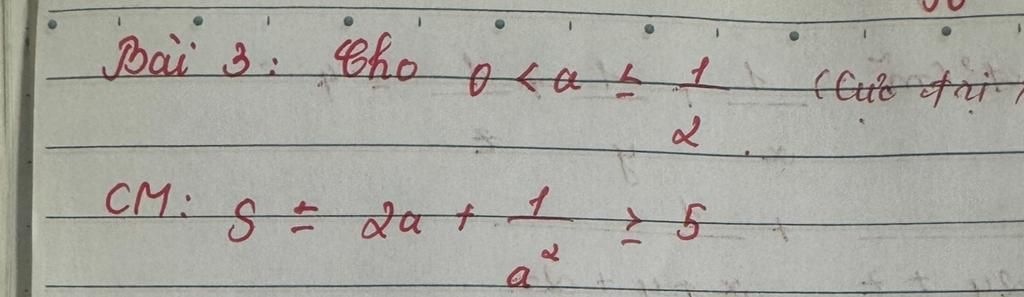 Bài 3: Cho 0 < a ≤ 1/2. (Cực trị)
CM: S = 2a + 1/a² ≥ 5